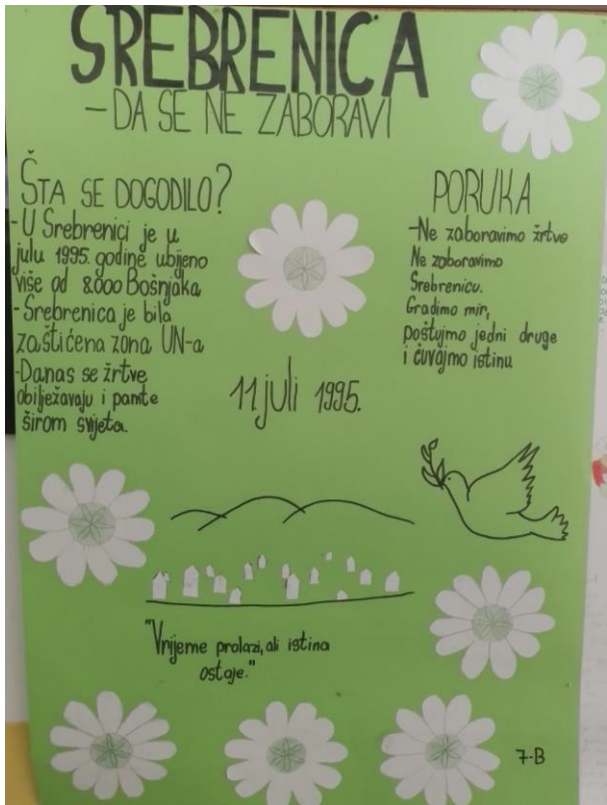 SREBRENICA
- DA SE NE ZABORAVI
ŠTA SE DOGODILO?
- U Srebrenici je u
julu 1995. godine ubijeno
više od 8.000 Bošnjaka
- Srebrenica je bila
zaštićena zona UN-a
- Danas se žrtve
obilježavaju i pamte
širom svijeta.
11 juli 1995.
PORUKA
- Ne zaboravimo žrtve
Ne zaboravimo
Srebrenicu.
Gradimo mir,
poštujmo jedni druge
i čuvajmo istinu
"Vrijeme prolazi, ali istina
ostaje."
7-B